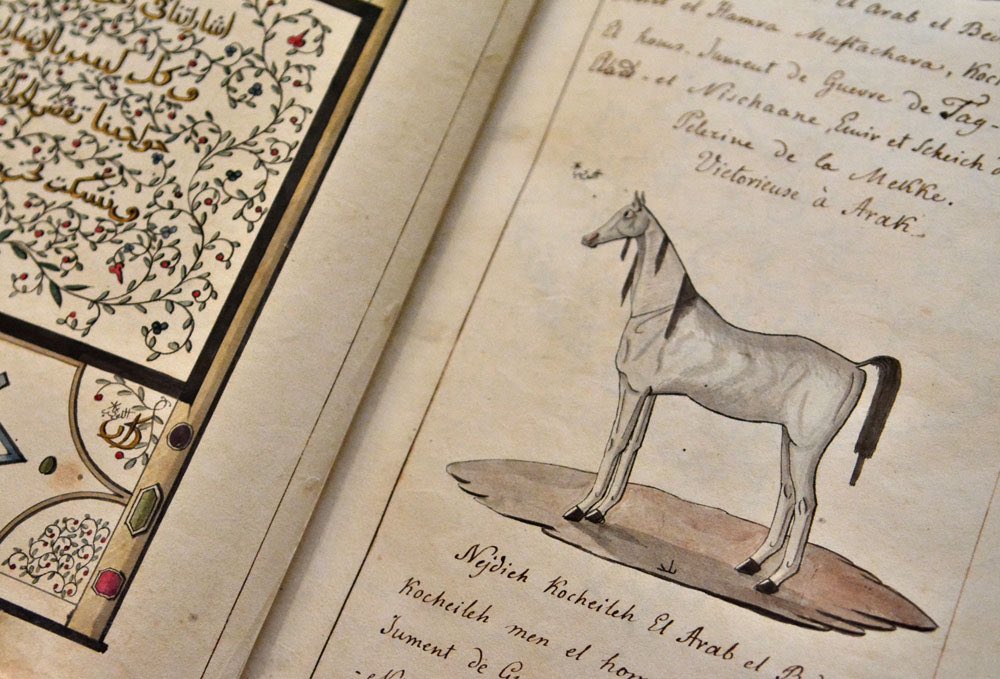 اشاراتنا في
وكل لبيب بالاشارة
حواجبنا تقضى الحوائج
ونسكت نحن
El Arab el Bed
et el Hamra Mustachara, Koc
El homs. Jument de Guerre de Tag-
el Nischaane, Emir et Scheich
Pelerine de la Mekke.
Victorieuse à Arak.
Nejdieh Kocheileh El Arab el B
Kocheileh men el hom
Jument de Gu